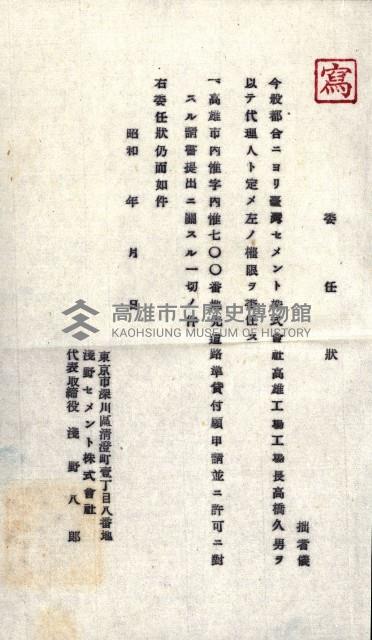 寫
委任狀
拙者儀
今般都合ニヨリ臺灣セメント株式會社高雄工場工場長高橋久男ヲ
以テ代理人ト定メ左ノ權限ヲ委任ス
一、高雄市內惟字內惟七〇〇番地先道路準貸付願申請並ニ許可ニ對
スル請書提出ニ關スル一切ノ件
右委任狀仍而如件
昭和 年 月 日
東京市深川區淸澄町壹丁目八番地
淺野セメント株式會社
代表取締役 淺野八郎
高雄市立歷史博物館
KAOHSIUNG MUSEUM OF HISTORY